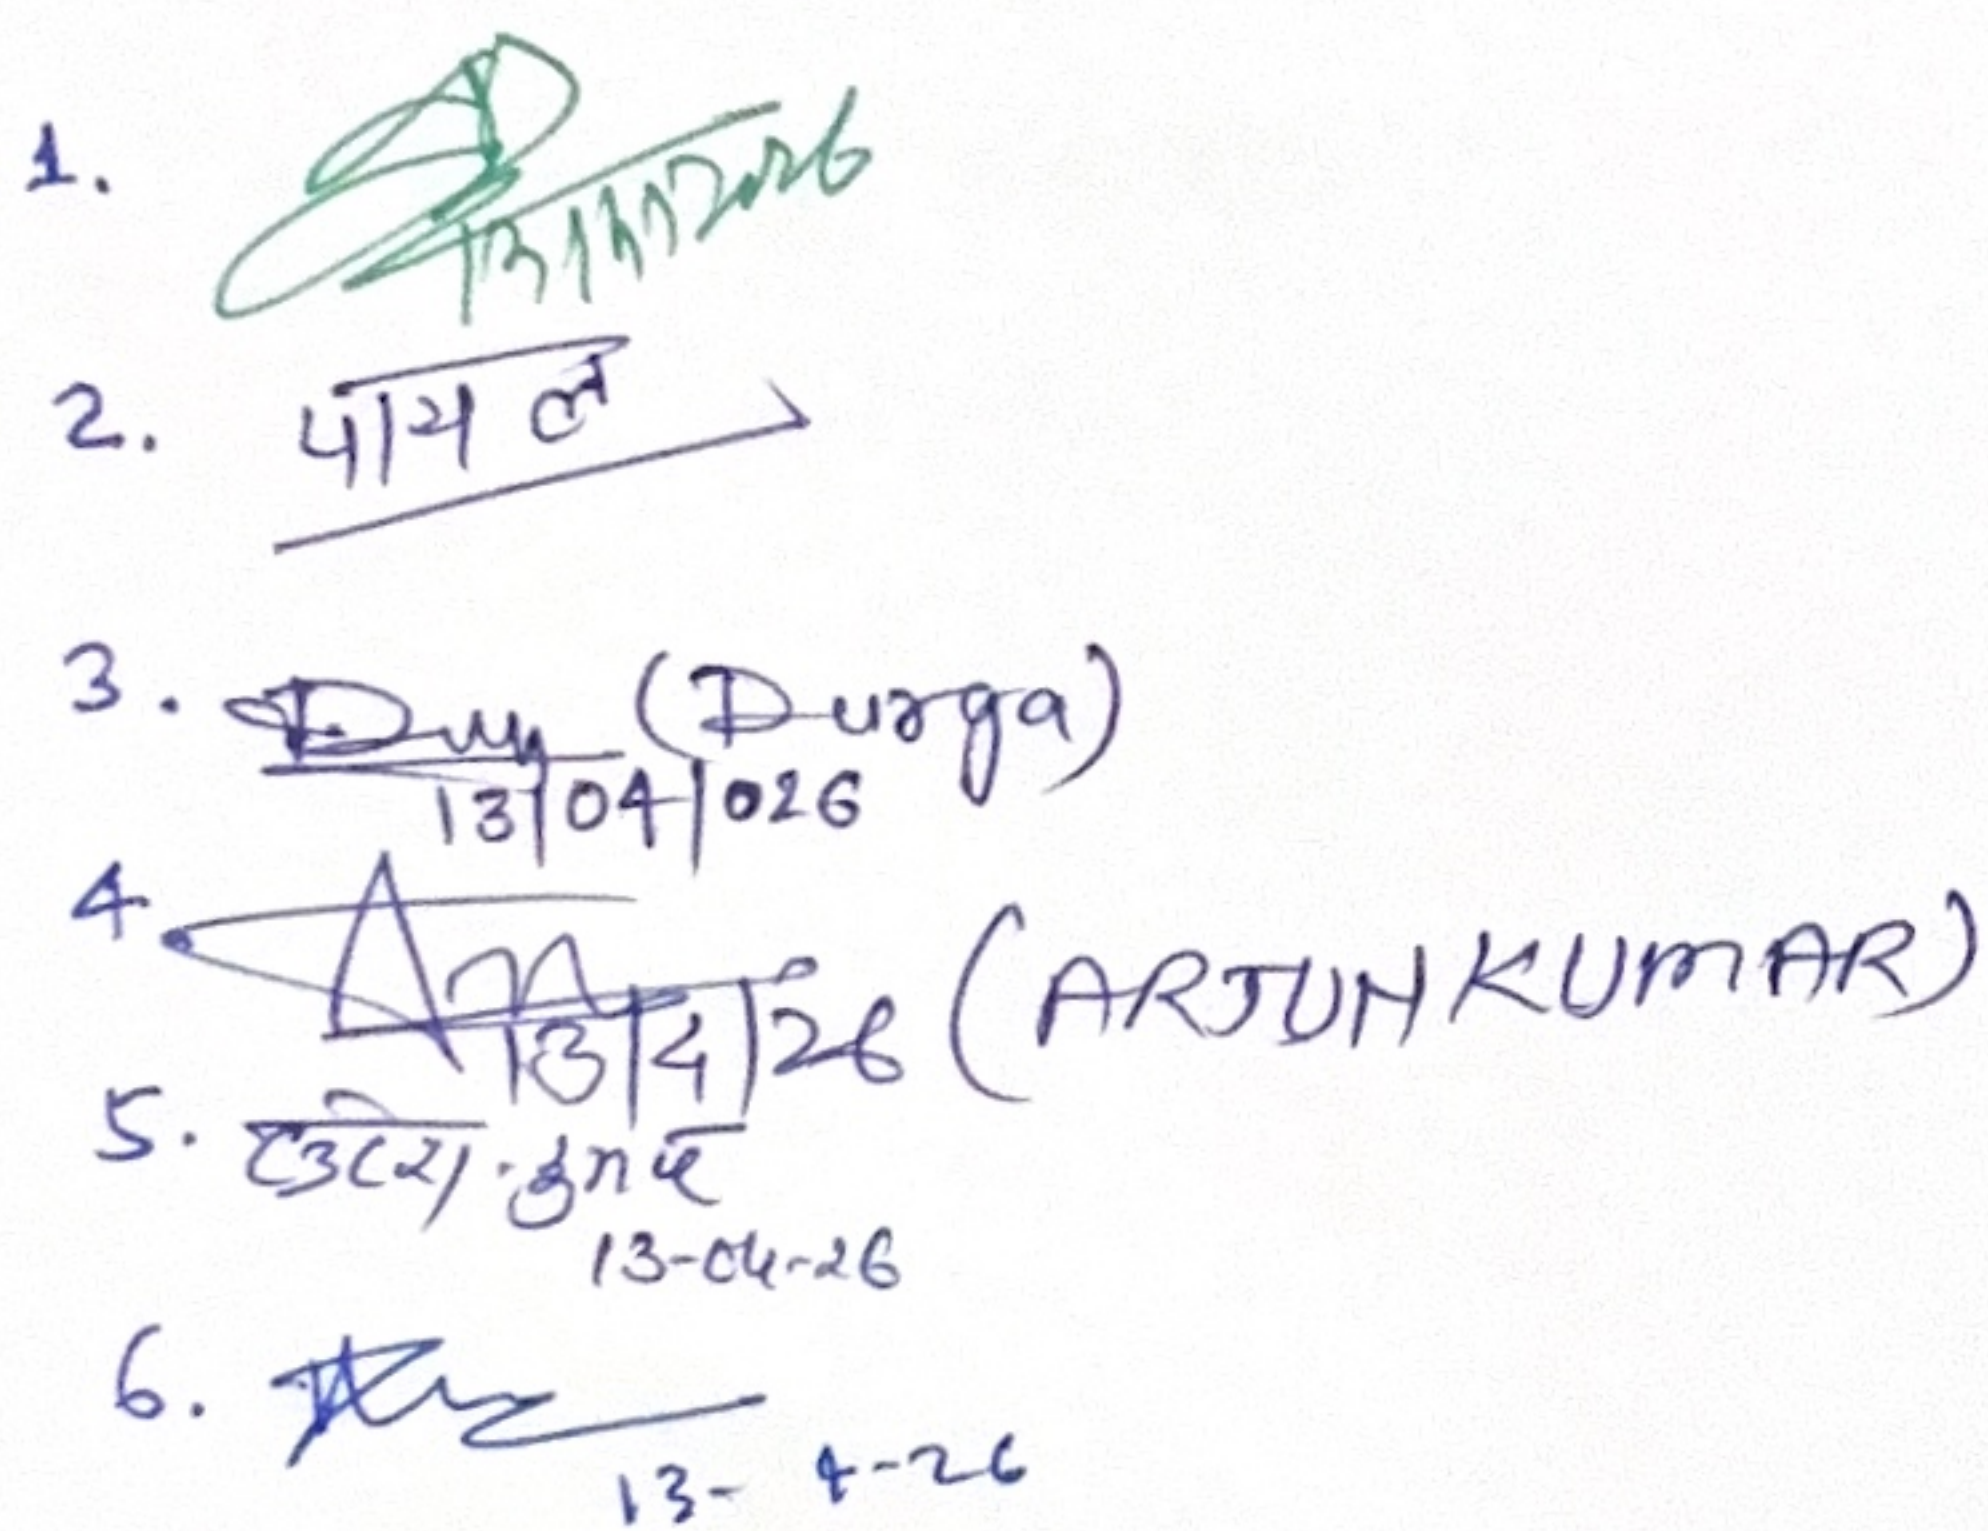 1.
13/4/2026
2. पायल
3. (Durga)
13/04/026
4. (ARJUN KUMAR)
13/4/26
5.
13-04-26
6.
13-4-26